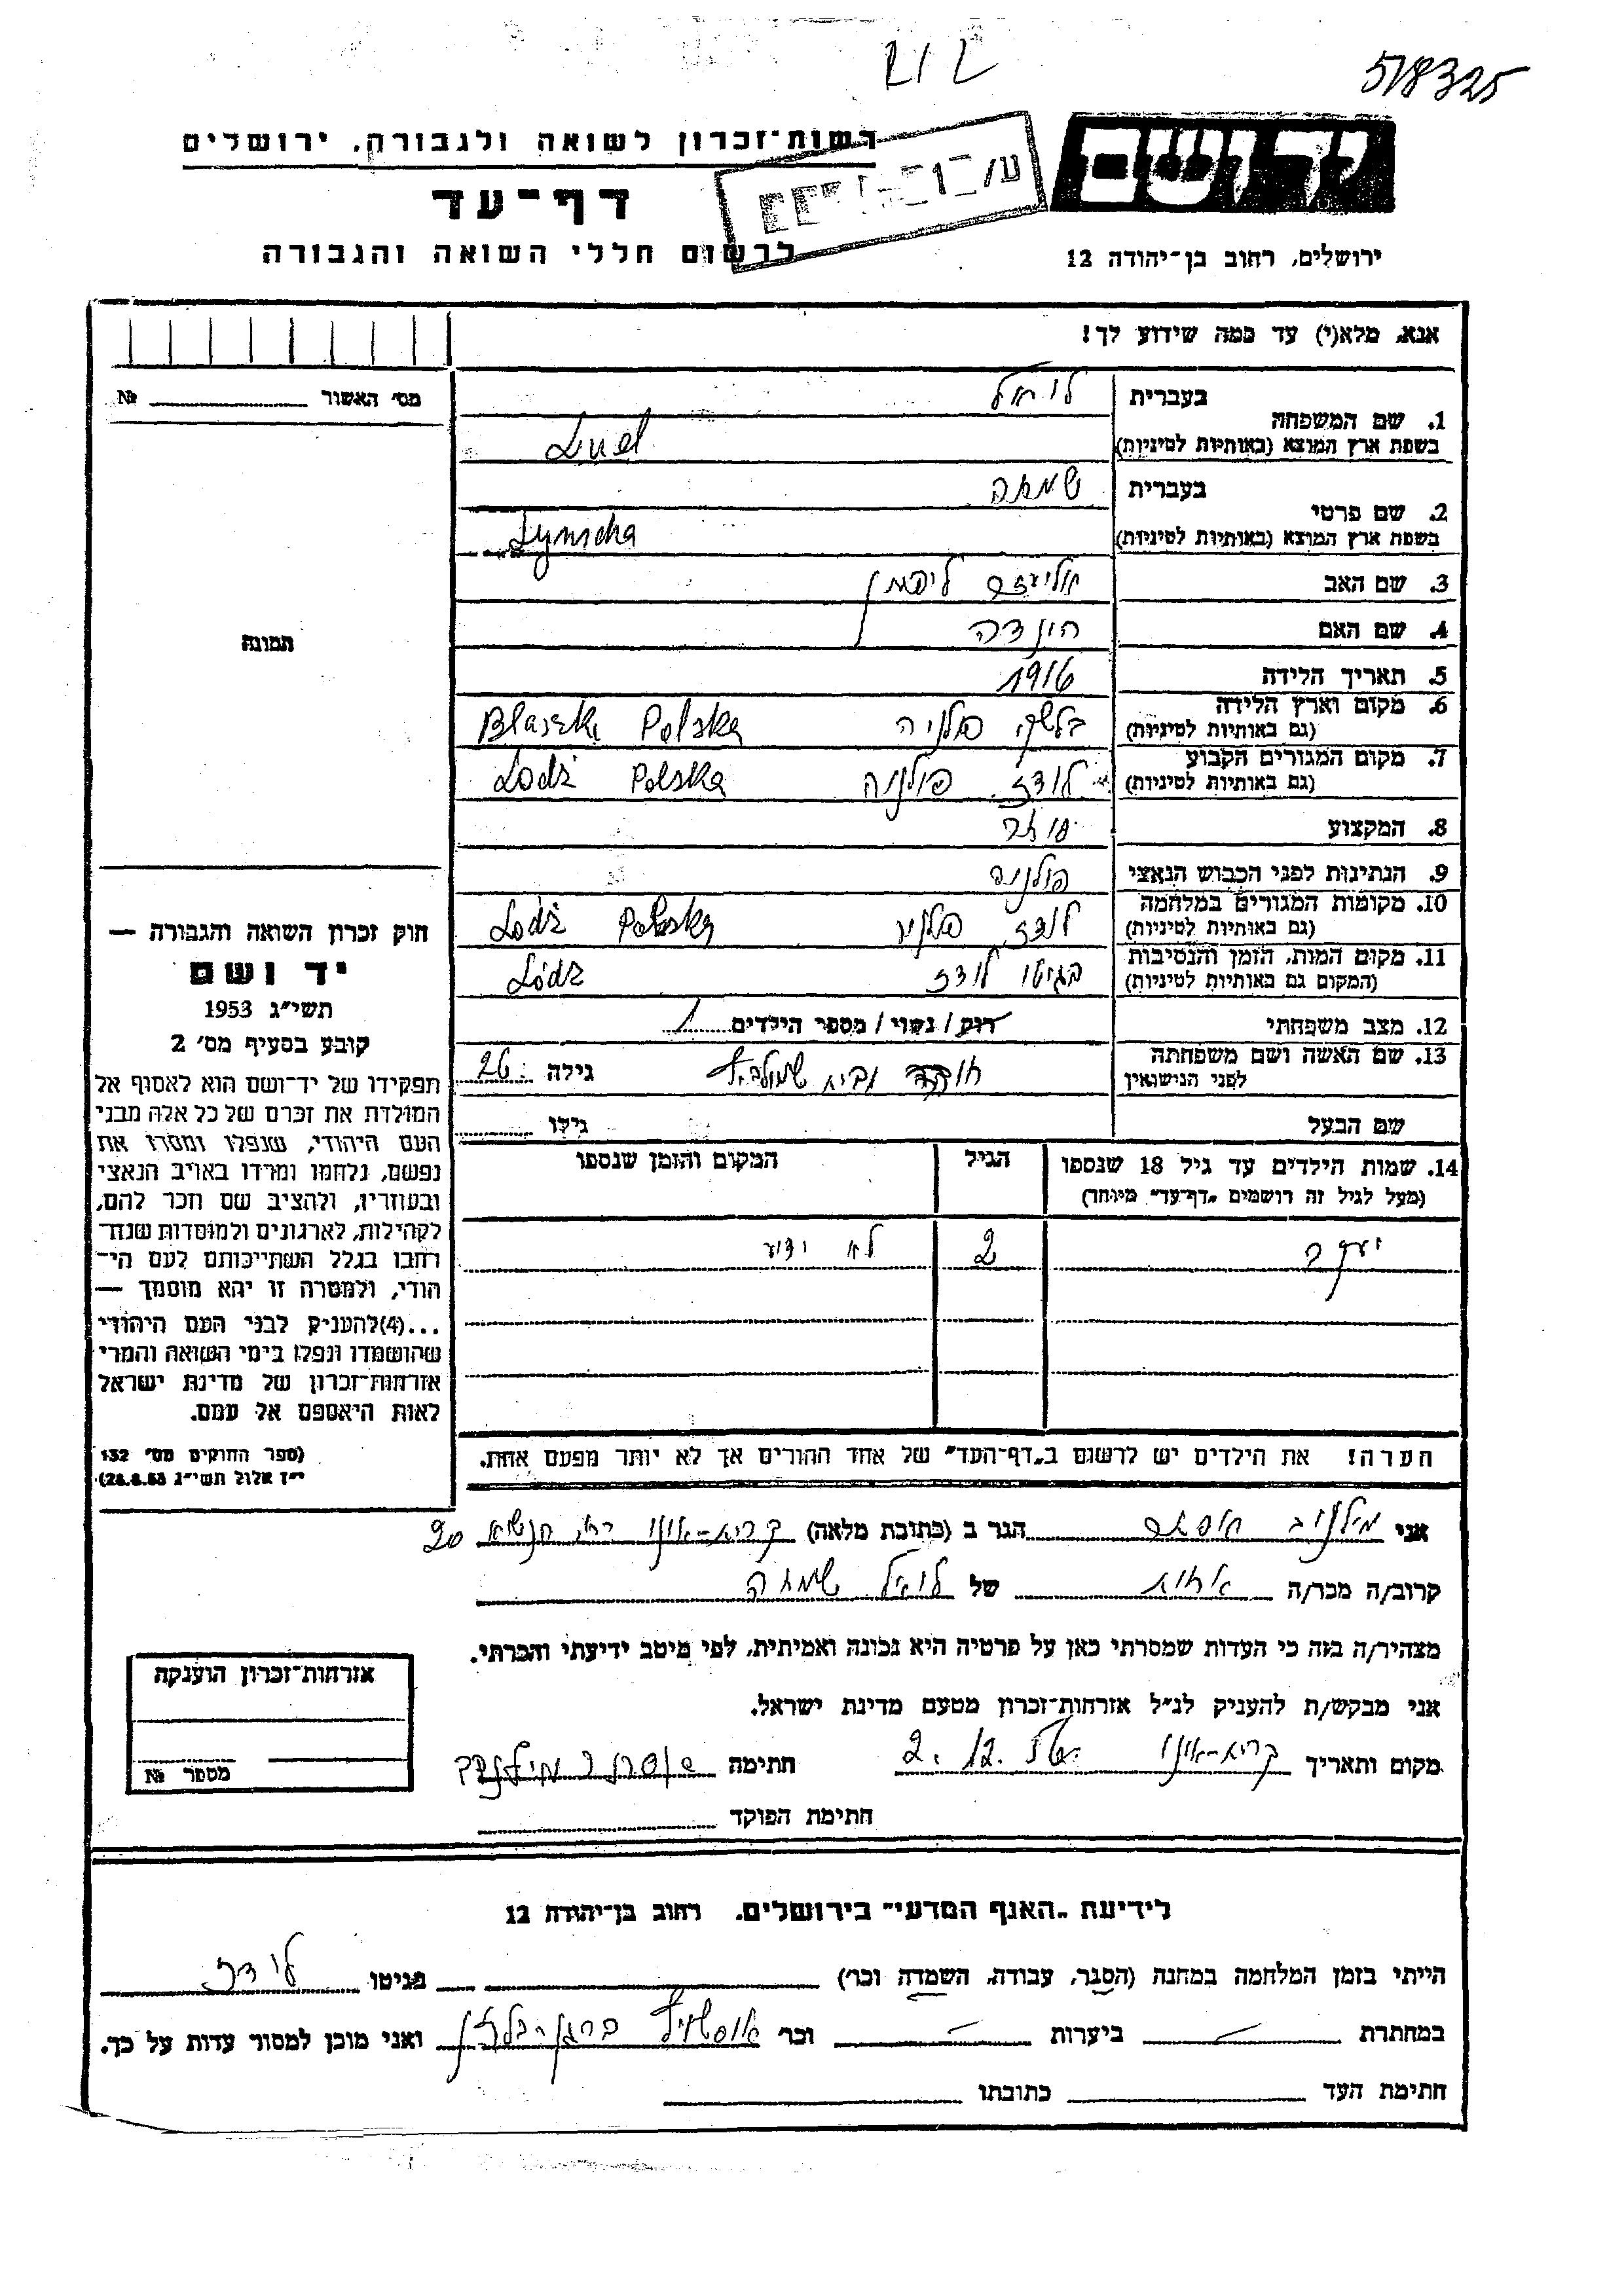 518325
רשות־זכרון לשואה ולגבורה, ירושלים
יד ושם
דף־עד
לרשום חללי השואה והגבורה
ירושלים, רחוב בן־יהודה 12
אנא, מלא(י) עד כמה שידוע לך!
מס׳ האשור № ..........
1. שם המשפחה
בעברית לואל
בשפת ארץ המוצא (באותיות לטיניות) Luel
2. שם פרטי
בעברית שמחה
בשפת ארץ המוצא (באותיות לטיניות) Symcha
3. שם האב אליעזר ליפמן
4. שם האם הינדה
5. תאריך הלידה 1916
6. מקום וארץ הלידה (גם באותיות לטיניות) בלשקי פולניה Blaszki Polska
7. מקום המגורים הקבוע (גם באותיות לטיניות) לודז פולניה Lodź Polska
8. המקצוע
9. הנתינות לפני הכבוש הנאצי פולנית
10. מקומות המגורים במלחמה (גם באותיות לטיניות) לודז פולניה Lodź Polska
11. מקום המות, הזמן והנסיבות (המקום גם באותיות לטיניות) בגיטו לודז Lódź
12. מצב משפחתי רוק / נשוי / מספר הילדים 1
13. שם האשה ושם משפחתה לפני הנישואין גילה 26
שם הבעל גילו
תמונה
חוק זכרון השואה והגבורה —
יד ושם
תשי״ג 1953
קובע בסעיף מס׳ 2
תפקידו של יד־ושם הוא לאסוף אל
המולדת את זכרם של כל אלה מבני
העם היהודי, שנפלו ומסרו את
נפשם, נלחמו ומרדו באויב הנאצי
ובעוזריו, ולהציב שם וזכר להם,
לקהילות, לארגונים ולמוסדות שנח־
רבו בגלל השתייכותם לעם הי־
הודי, ולמטרה זו יהא מוסמך —
...(4) להעניק לבני העם היהודי
שהושמדו ונפלו בימי השואה והמרי
אזרחות־זכרון של מדינת ישראל
לאות היאספם אל עמם.
(ספר החוקים מס׳ 132
י״ז אלול תשי״ג 28.8.53)
14. שמות הילדים עד גיל 18 שנספו הגיל המקום והזמן שנספו
(מעל לגיל זה רושמים „דף־עד״ מיוחד)
יעקב 2 לא ידוע
הערה! את הילדים יש לרשום ב„דף־העד״ של אחד ההורים אך לא יותר מפעם אחת.
אני מילנוב אסתר הגר ב (כתובת מלאה) קרית-אונו רח׳ הנשיא 20
קרוב/ה מכר/ה אחות של לואל שמחה
מצהיר/ה בזה כי העדות שמסרתי כאן על פרטיה היא נכונה ואמיתית, לפי מיטב ידיעתי והכרתי.
אני מבקש/ת להעניק לנ״ל אזרחות־זכרון מטעם מדינת ישראל.
מקום ותאריך קרית-אונו 2.12. חתימה
חתימת הפוקד
אזרחות־זכרון הוענקה
מספר №
לידיעת „האגף המדעי״ בירושלים. רחוב בן־יהודה 12
הייתי בזמן המלחמה במחנה (הסגר, עבודה, השמדה וכר׳) בגיטו לודז
במחתרת — ביערות — וכר׳ אושויץ ברגן-בלזן ואני מוכן למסור עדות על כך.
חתימת העד כתובתו